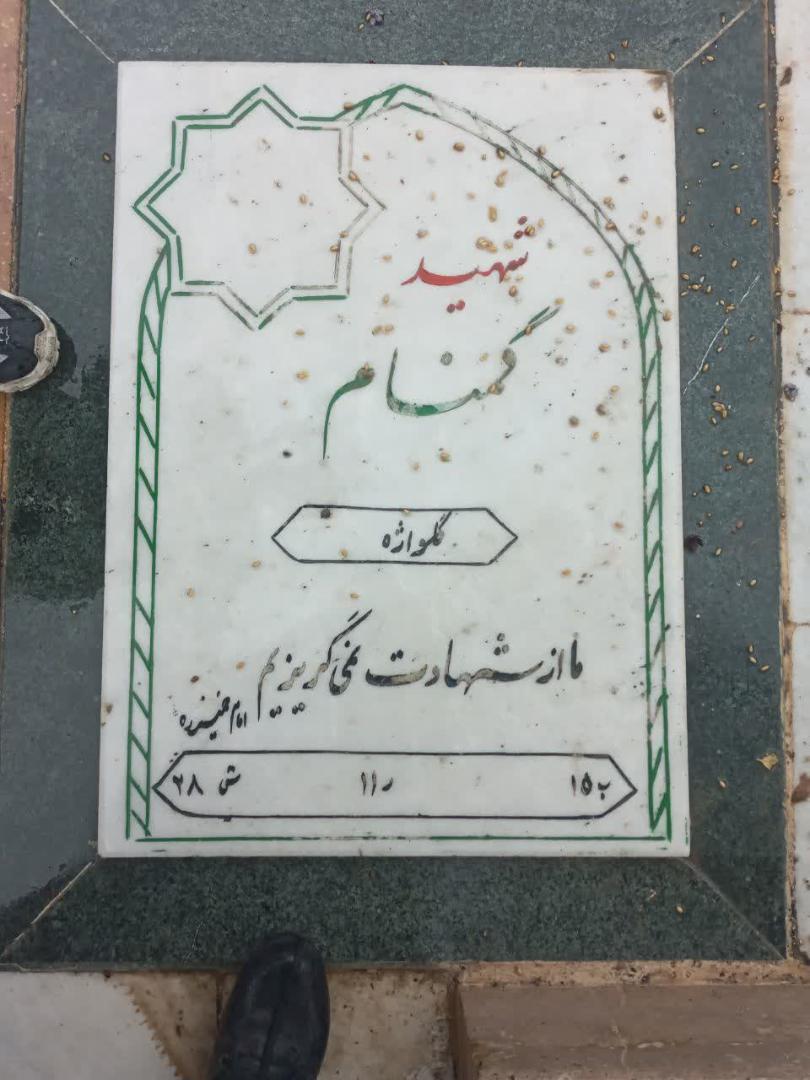 شهید
گمنام
گلواژه
ما از شهادت نمی گریزیم
امام خمینی ره
ب ۱۵ ر ۱۱ ش ۲۸